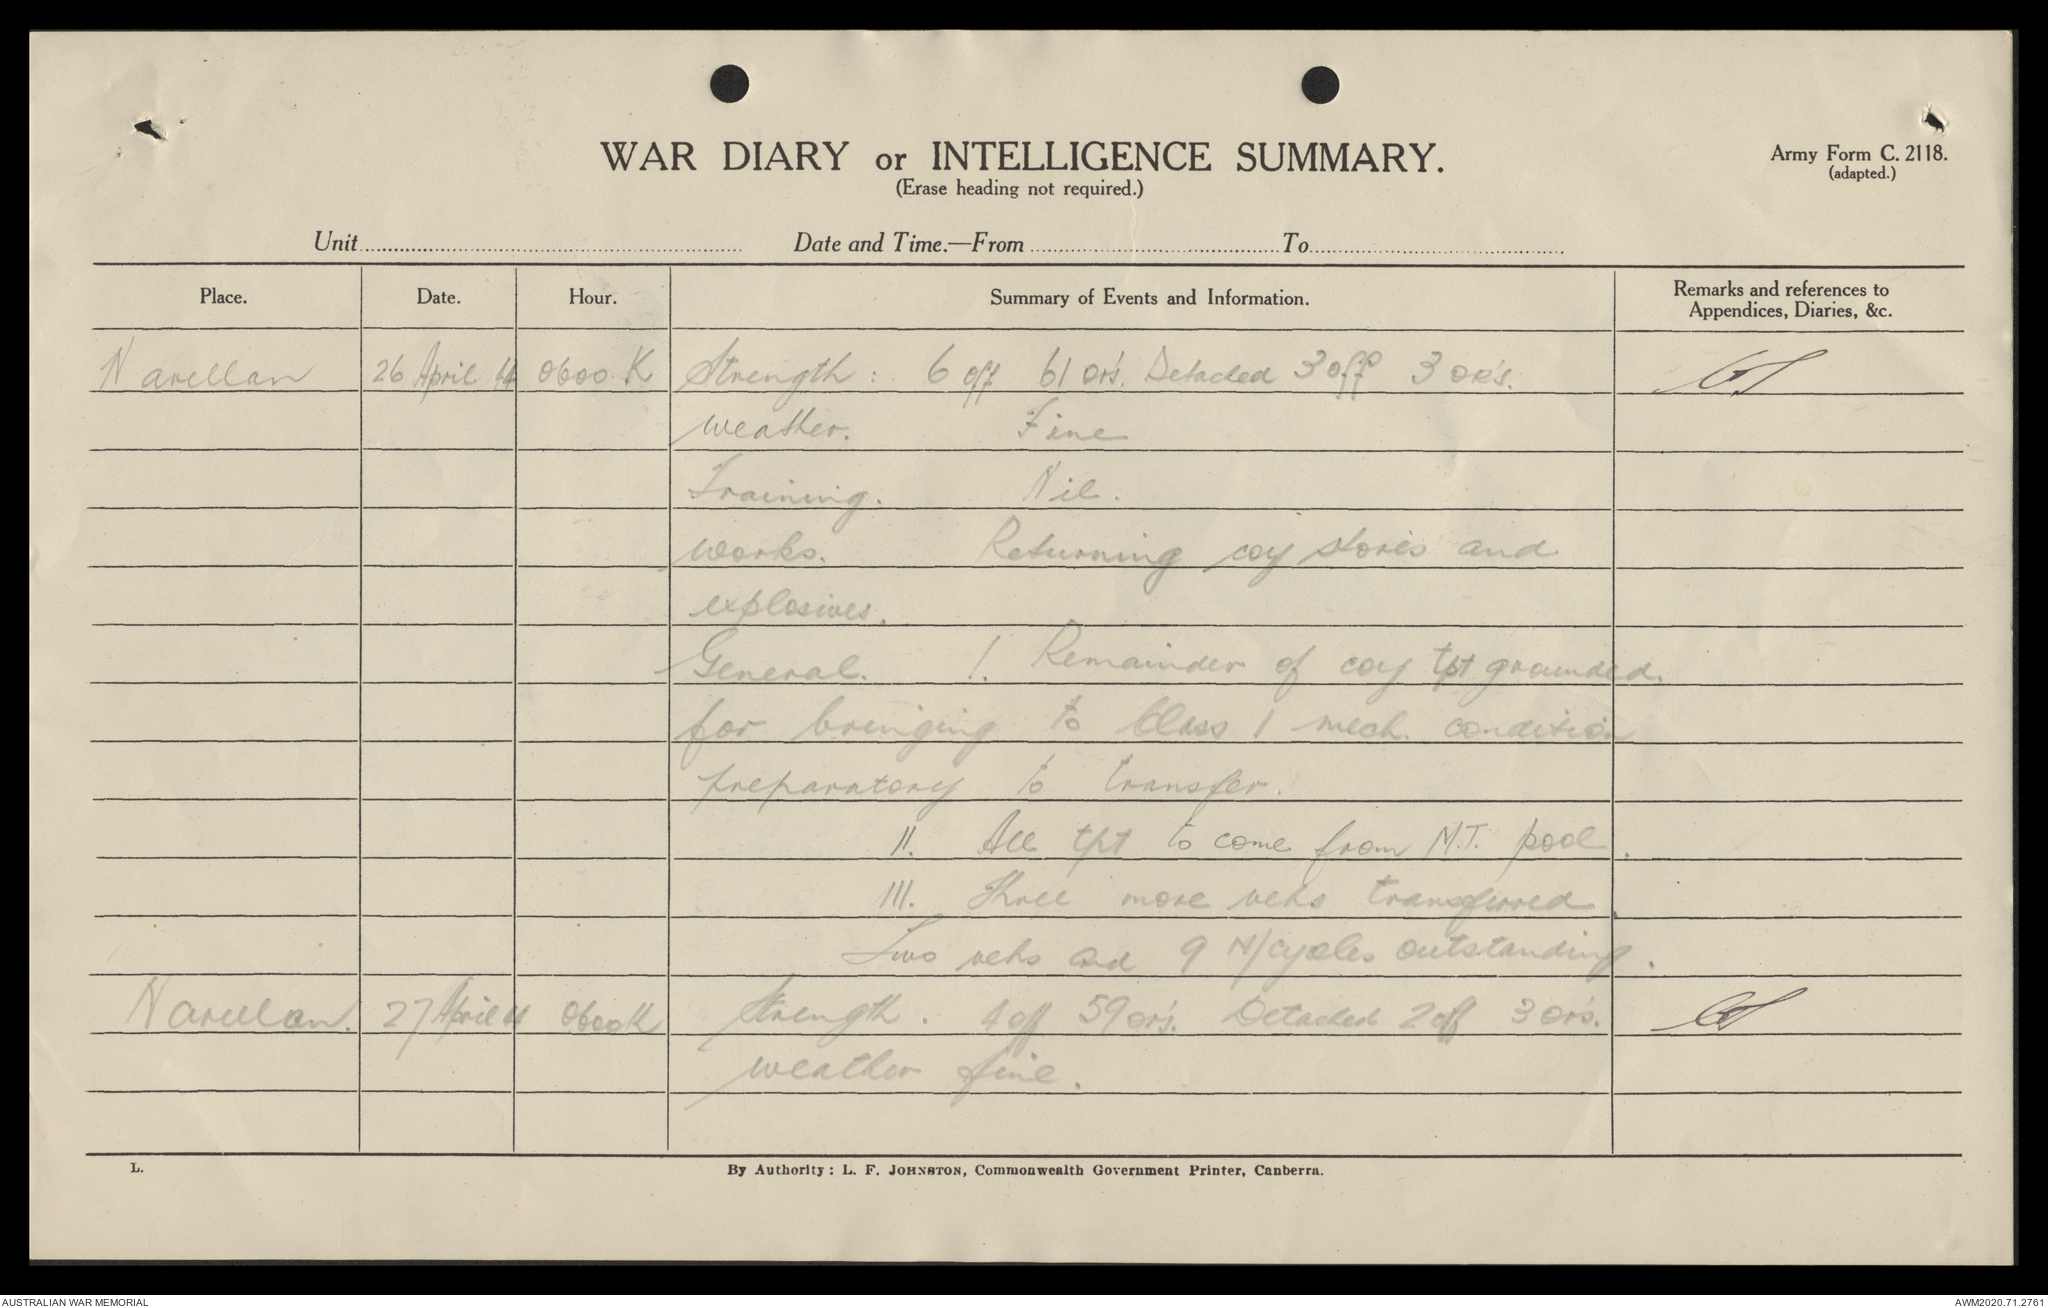 WAR DIARY or INTELLIGENCE SUMMARY.
Army Form C. 2118.
(adapted.)
(Erase heading not required.)
Unit
Date and Time.—From
To
Place.
Date.
Hour.
Summary of Events and Information.
Remarks and references to
Appendices, Diaries, &c.
Narellan 26 April 44 0600 K Strength: 6 off 61 ors. Detached 3 off 3 ors.
Weather. Fine
Training. Nil.
Works. Returning coy stores and
explosives.
General. 1. Remainder of coy tpt grounded.
for bringing to Class 1 mech. condition
preparatory to transfer.
II. All tpt to come from M.T. pool.
III. Three more vehs transferred.
Two vehs and 9 M/cycles outstanding.
Narellan. 27 April 44 0600K Strength. 4 off 59 ors. Detached 2 off 3 ors.
Weather fine.
L.
By Authority: L. F. JOHNSTON, Commonwealth Government Printer, Canberra.
AUSTRALIAN WAR MEMORIAL
AWM2020.71.2761